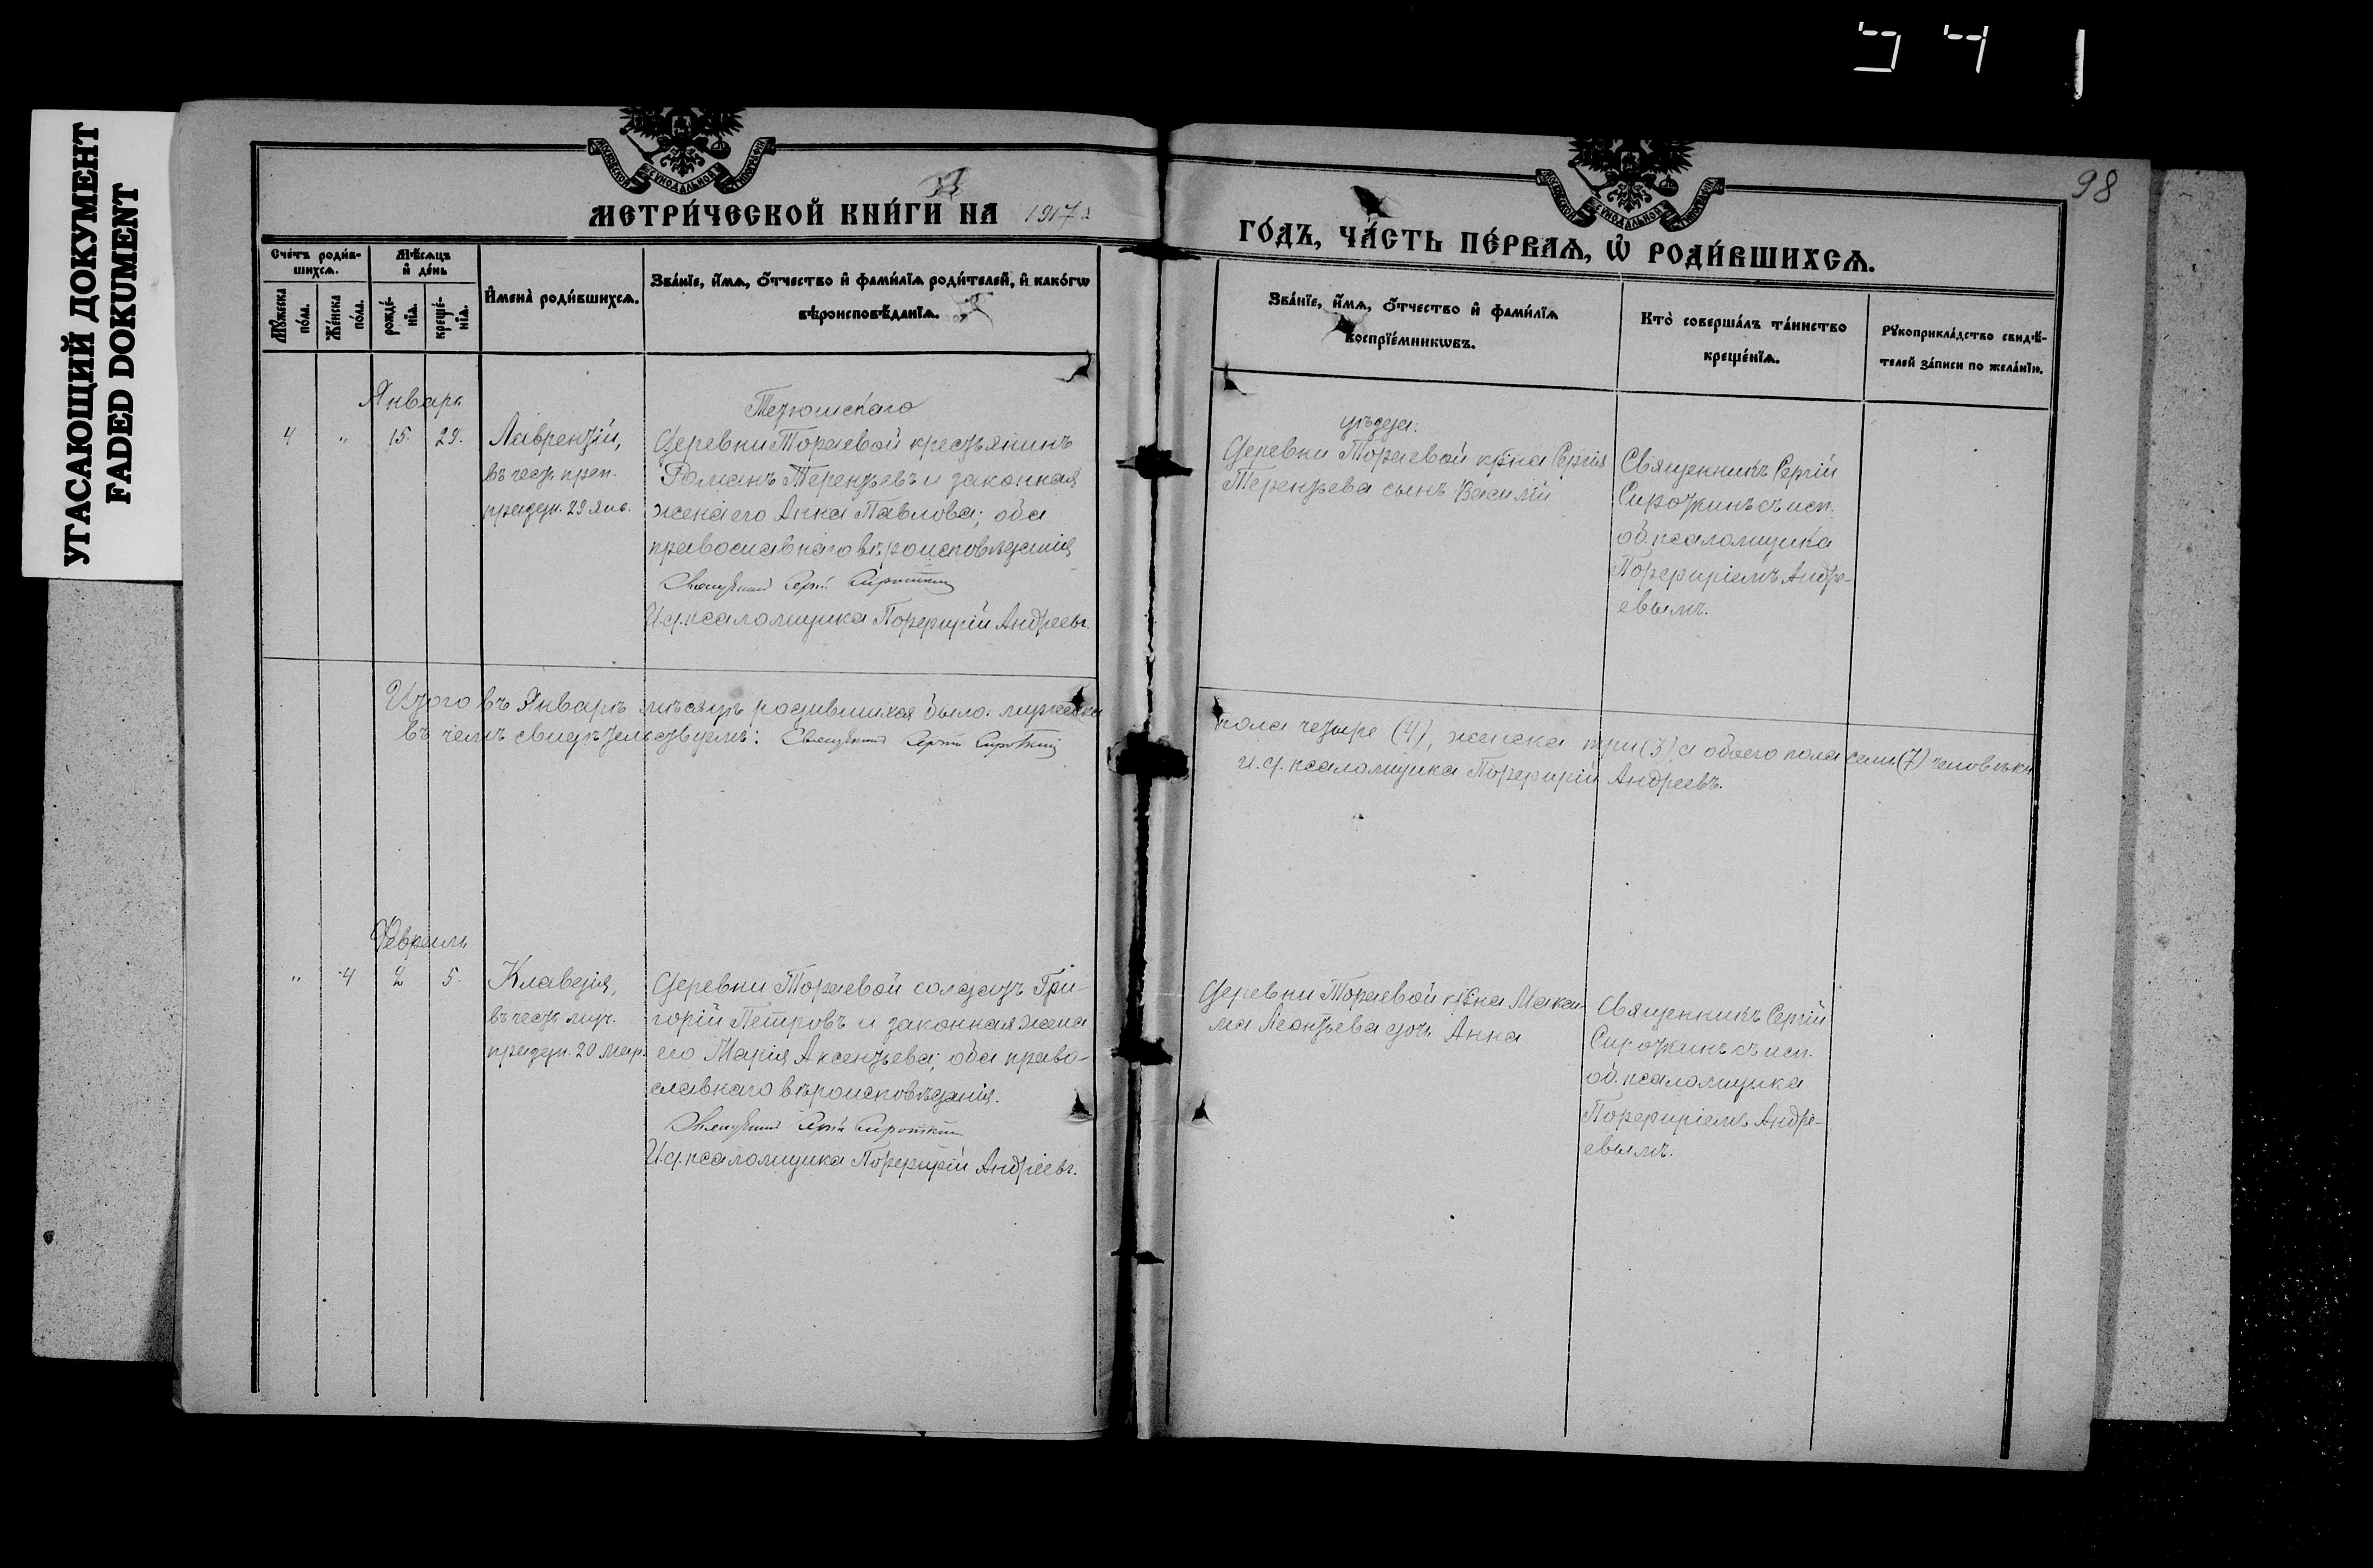 УГАСАЮЩИЙ ДОКУМЕНТ
FADED DOKUMENT
98
МЕТРИ́ЧЕСКОЙ КНИ́ГИ НА 1917 г
ГО́ДЪ, ЧА́СТЬ ПЕ́РВАѦ, Ѡ҆ РОДИ́ВШИХСѦ.
Сче́тъ роди́в-
шихсѧ.
Мѣ́сѧцъ
и҆ де́нь
Мꙋ́жеска
по́ла.
Же́нска
по́ла.
рожде́-
нїѧ.
креще́-
нїѧ.
И҆мена̀ роди́вшихсѧ.
Зва́нїе, и҆́мѧ, ѻ҆́тчество и҆ фами́лїѧ роди́телей, и҆ како́гѡ
вѣроисповѣ́данїѧ.
Зва́нїе, и҆́мѧ, ѻ҆́тчество и҆ фами́лїѧ
воспрїе́мникѡвъ.
Кто̀ соверша́лъ та́инство
креще́нїѧ.
Рꙋкоприкла́дство свидѣ́-
телей за́писи по жела́нїю.
Январь
4 " 15. 29.
Лаврентій,
въ честь преп.
празден. 29 янв.
Тетюшскаго
Деревни Тораевой крестьянинъ
Романъ Терентьевъ и законная
жена его Анна Павлова; оба
православнаго вѣроисповѣданія
Священникъ Сергій Сироткин
И.д. псаломщика Порфирій Андреевъ.
уѣзда:
Деревни Тораевой кр-на Сергія
Терентьева сынъ Василій
Священникъ Сергій
Сироткинъ съ исп.
об. псаломщика
Порфиріемъ Андре-
евымъ.
Итого въ Январѣ мѣсяцѣ родившихся было: мужеска
пола четыре (4), женска три (3) а обоего пола семь (7) человѣкъ
въ чемъ свидѣтельствуемъ: Священник Сергій Сироткин
и.д. псаломщика Порфирій Андреевъ.
Февраль
" 4 2 5.
Клавдія,
въ честь муч.
празден. 20 мар.
Деревни Тораевой солдатъ Гри-
горій Петровъ и законная жена
его Марія Аксентьева; оба право-
славнаго вѣроисповѣданія.
Священник Сергій Сироткин
И.д. псаломщика Порфирій Андреевъ.
Деревни Тораевой кр-на Макси-
ма Леонтьева дочь Анна
Священникъ Сергій
Сироткинъ съ исп.
об. псаломщика
Порфиріемъ Андре-
евымъ.